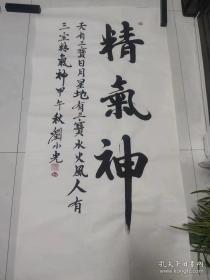 精氣神
天有三寶日月星地有三寶水火風人有
三寶精氣神甲午秋劉小光